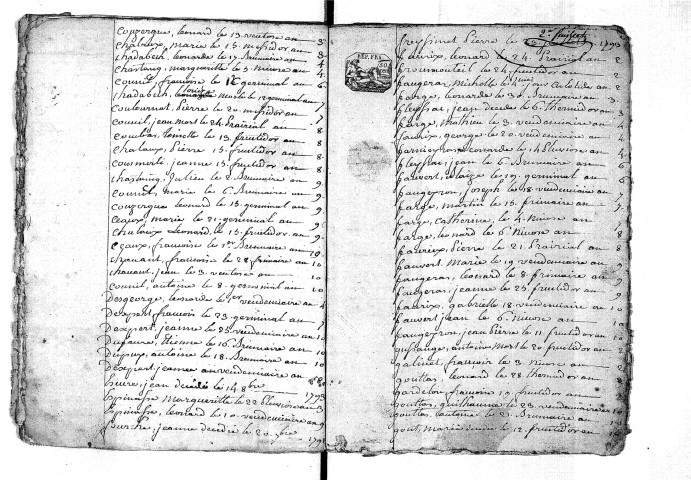 Couzergue, leonard le 13 ventose an 3
Chabaux, marie le 15 messidor an 3
Chadabech, leonarde le 17 Brumaire an 4
Chastang, marguerite le 5 Nivose an 4
Couneil, francoise le 12 germinal an 6
Chadabech, Marte le 12 germinal an 7
Coutournat, Pierre le 20 messidor an 7
Couneil, jean mort le 24 Prairial an 8
Coumbas, toinette le 13 fruitidor an 8
Chabaux, Pierre 15 fruitidor an 8
Cousmorte, jeanne 15 fruitidor an 8
Chastaing, Julien le 2 Brumaire an 9
Couneil, Marie le 6 Brumaire an 9
Couzergue leonard le 15 germinal an 9
Ceaux, marie le 21 germinal an 9
Chabaux Leonard, le 15 fruitidor an 9
Ceaux, francoise le 1er Brumaire an 10
Chauant, francoise le 28 frimaire an 10
Chauant, jean le 3 ventose an 10
Couneil antoine le 8 germinal an 10
Desgeorge, leonarde le 1er vendemiaire an 4
Dexpert francois le 23 germinal an 7
Dexpert, jeanne le 25 vendemiaire an
Dufaure, Etienne le 16 Brumaire an 10
Dupuy, antoine le 18 Brumaire an 10
Dexpert jeanne an vendemiaire an
heure, jean décédé le 14 8bre 1793
Epinasse Margueritte le 22 Pluviose an 3
Epinasse, leonard le 10 vendemiaire an 9
Fourche, jeanne decedee le 20 1792
2e feuillet
freyssinet Pierre le 1793
faurix, leonard le 24 Prairial an 2
le 24 fruitidor an
faugeras, Michelle le 4 jour
farge, leonarde le 30 Brumaire an 3
fleyssat, jean decede le 6 thermidor an 3
farge, Mathieu le 3 vendemiaire an 4
faurix, george le 20 vendemiaire an 4
Leonarde le 14 Pluviose an 4
fleyssat, jean le 6 Brumaire an 6
fauvert, blaize le 19 germinal an 6
faugeyron, Joseph le 18 vendemiaire an 7
farge, martin le 15 frimaire an 7
farge, Catherine, le 4 Nivose an 7
farge, leonard le 6 Nivose an 8
faurix, Pierre le 21 Prairial an 8
fauvert Marie le 19 vendemiaire an
faugeras, leonard le 8 frimaire an
faugeras, jeanne le 25 fruitidor an 9
faurix, gabrielle 18 vendemiaire an 10
fauvert jean le 6 Nivose an 10
faugeyron, jean Pierre le 11 fruitidor an
antoine mort le 20 fruitidor an
galinet, francois le 3 Nivose an
gouttas, leonard le 28 thermidor an 8
francois 13 fruitidor an
gouttas, guilhaumme le 23 vendemiaire an 10
gouttas, antoine le 21 Brumaire an
gout, Marie decedee le 12 fruitidor an
REP. FRA.